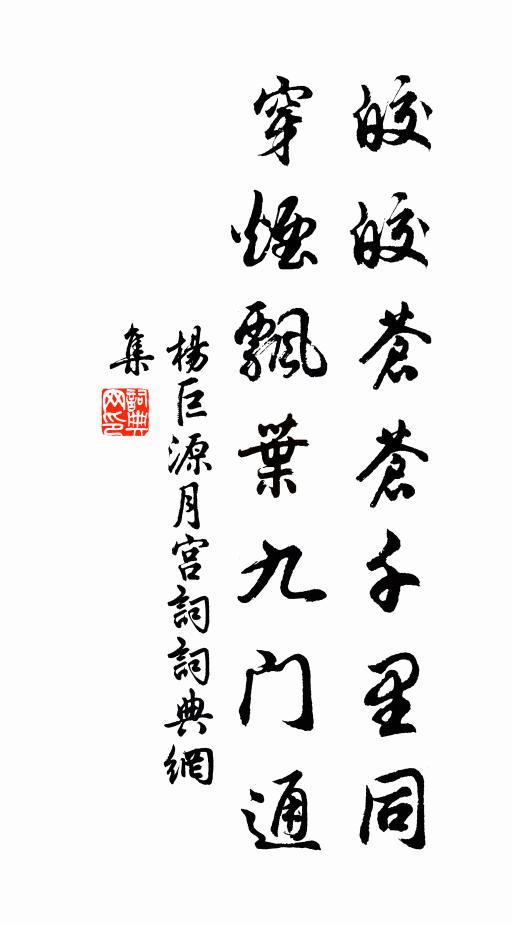 皎皎蒼蒼千里同
穿煙飄葉九门通
楊巨源月宮詞詞典網
集
詞典
网印